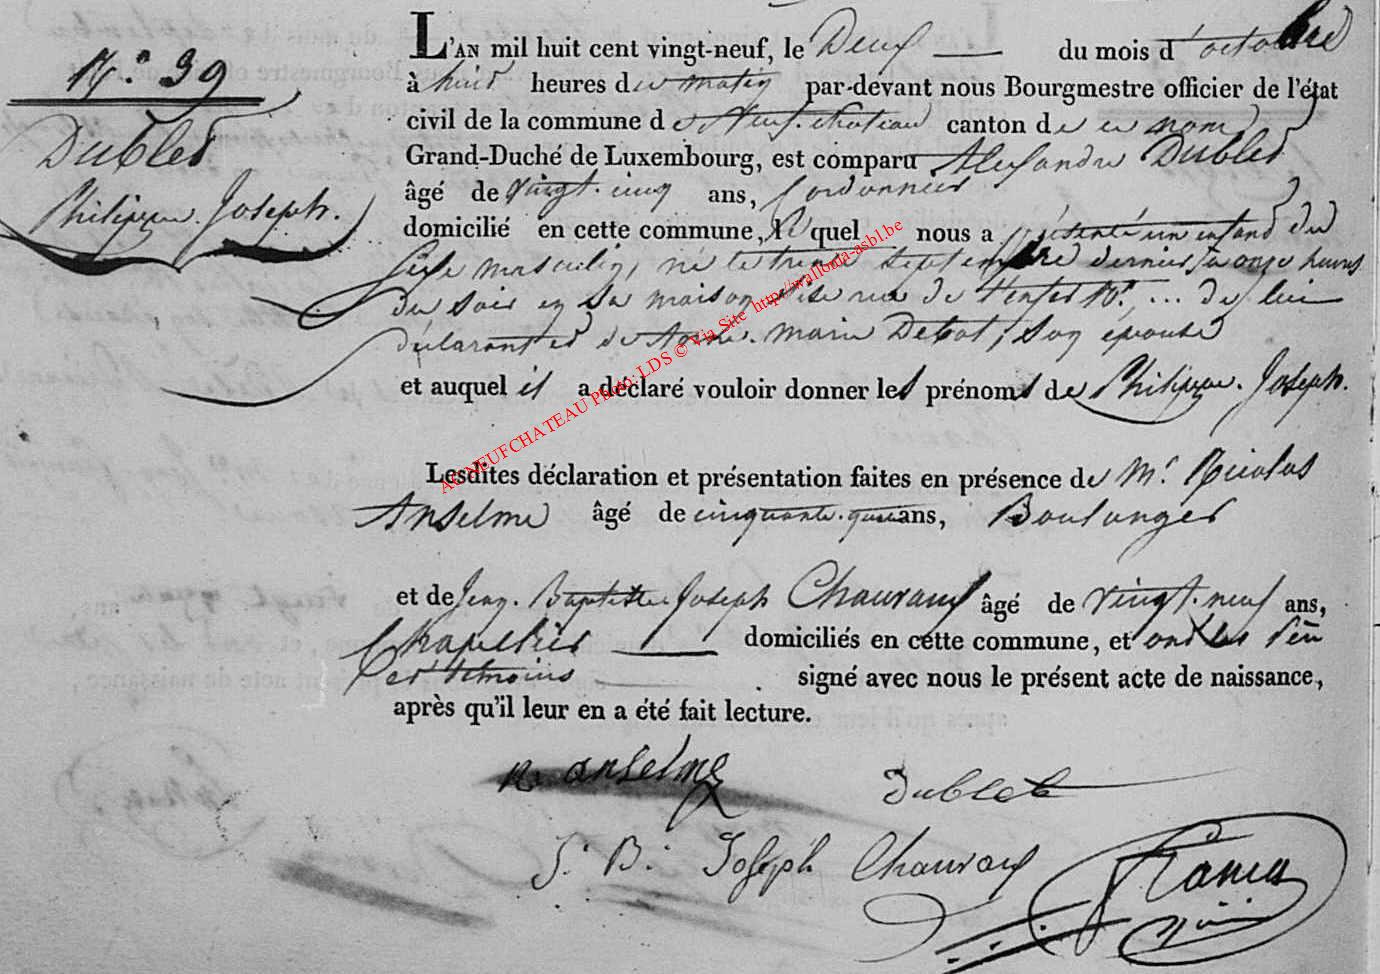 N.° 39
Dublet
Philippe Joseph.
L'AN mil huit cent vingt-neuf, le Deux du mois d'octobre
à huit heures du matin par-devant nous Bourgmestre officier de l'état
civil de la commune de Neufchateau canton de ce nom
Grand-Duché de Luxembourg, est comparu Alexandre Dublet
âgé de vingt-cinq ans, Cordonnier
domicilié en cette commune, lequel nous a présenté un enfant du
sexe masculin, né le trente septembre dernier, à onze heures
du soir en sa maison rue de N.° ... de lui
déclarant et de Anne Marie Debat, son épouse
et auquel il a déclaré vouloir donner les prénoms de Philippe Joseph.
Lesdites déclaration et présentation faites en présence de M.r Nicolas
Anselme âgé de cinquante ans, Boulanger
et de Jean-Baptiste Joseph Chauvaux âgé de vingt-neuf ans,
Chapelier domiciliés en cette commune, et ont les
témoins signé avec nous le présent acte de naissance,
après qu'il leur en a été fait lecture.
N. anselme Dublet
J. B. Joseph Chauvaux
AC NEUFCHATEAU Photo: LDS © Via Site http://wallonia-asbl.be